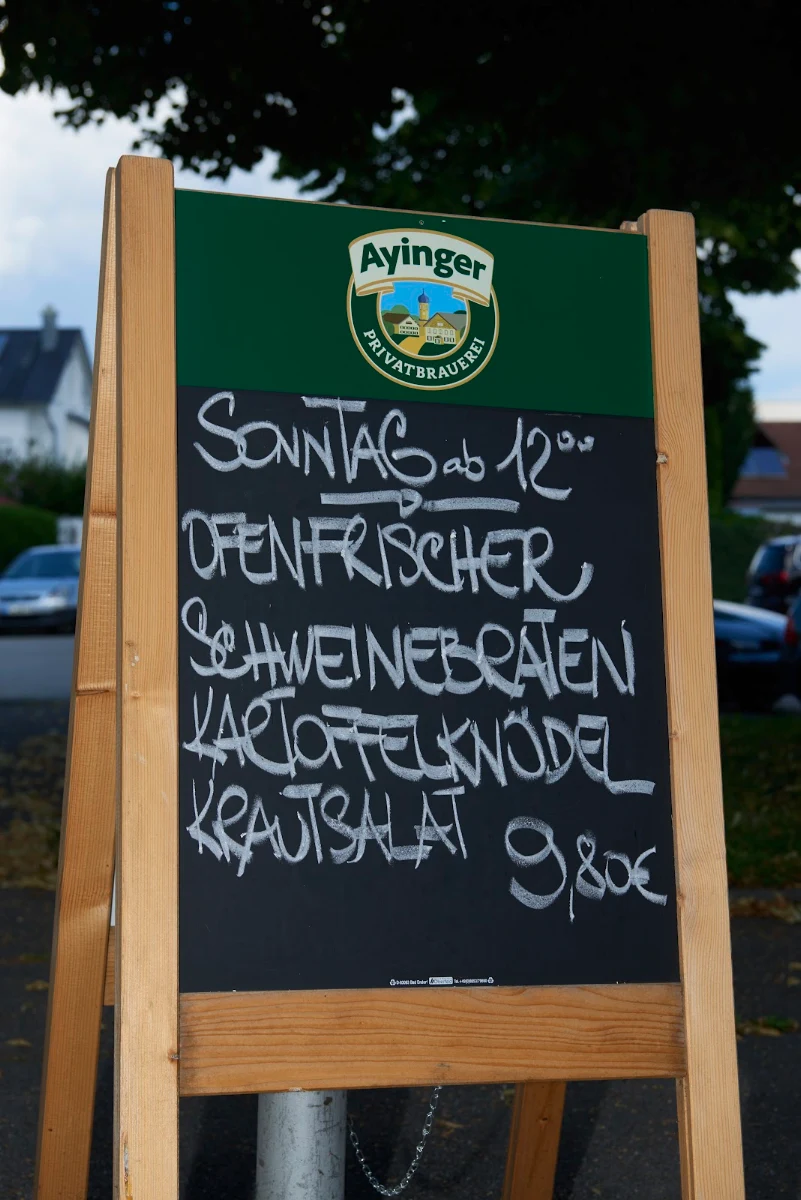 Ayinger
PRIVATBRAUEREI
SONNTAG ab 12⁰⁰
OFENFRISCHER
SCHWEINEBRATEN
KARTOFFELKNÖDEL
KRAUTSALAT
9,80€